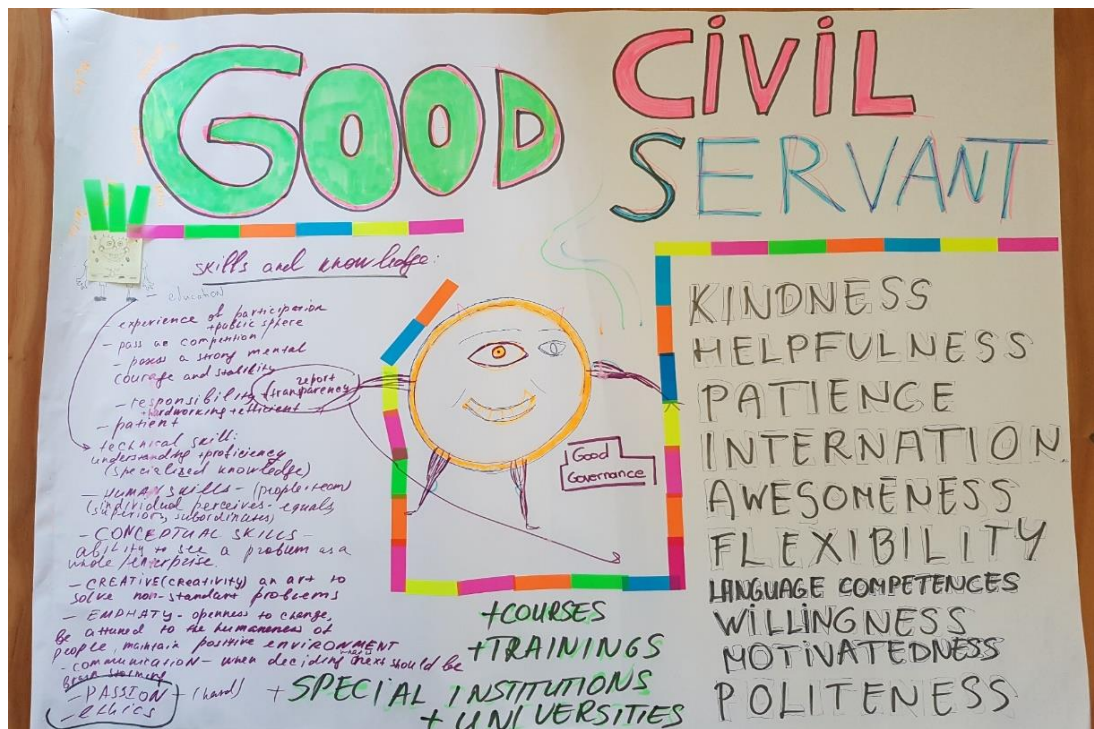 GOOD
CIVIL
SERVANT
skills and knowledge:
- education
- experience of participation
+ public sphere
- pass an competition
- posess a strong mental
courage and stability
- responsibility + transparency
report
+ hardworking + efficient
- patient
technical skill:
understanding + proficiency
(specialized knowledge)
- HUMAN SKILLS - (people + team)
(individual perceives - equals
superiors, subordinates)
- CONCEPTUAL SKILLS -
ability to see a problem as a
whole / enterprise.
- CREATIVE (creativity) an art to
solve non-standart problems
- EMPHATY - openness to change,
be attuned to the humaneness of
people, maintain positive ENVIRONMENT
- communication - when deciding there should be
brain storming
- PASSION + (hard)
- ethics
Good
Governance
+ COURSES
+ TRAININGS
+ SPECIAL INSTITUTIONS
+ UNIVERSITIES
KINDNESS
HELPFULNESS
PATIENCE
INTERNATION.
AWESOMENESS
FLEXIBILITY
LANGUAGE COMPETENCES
WILLINGNESS
MOTIVATEDNESS
POLITENESS